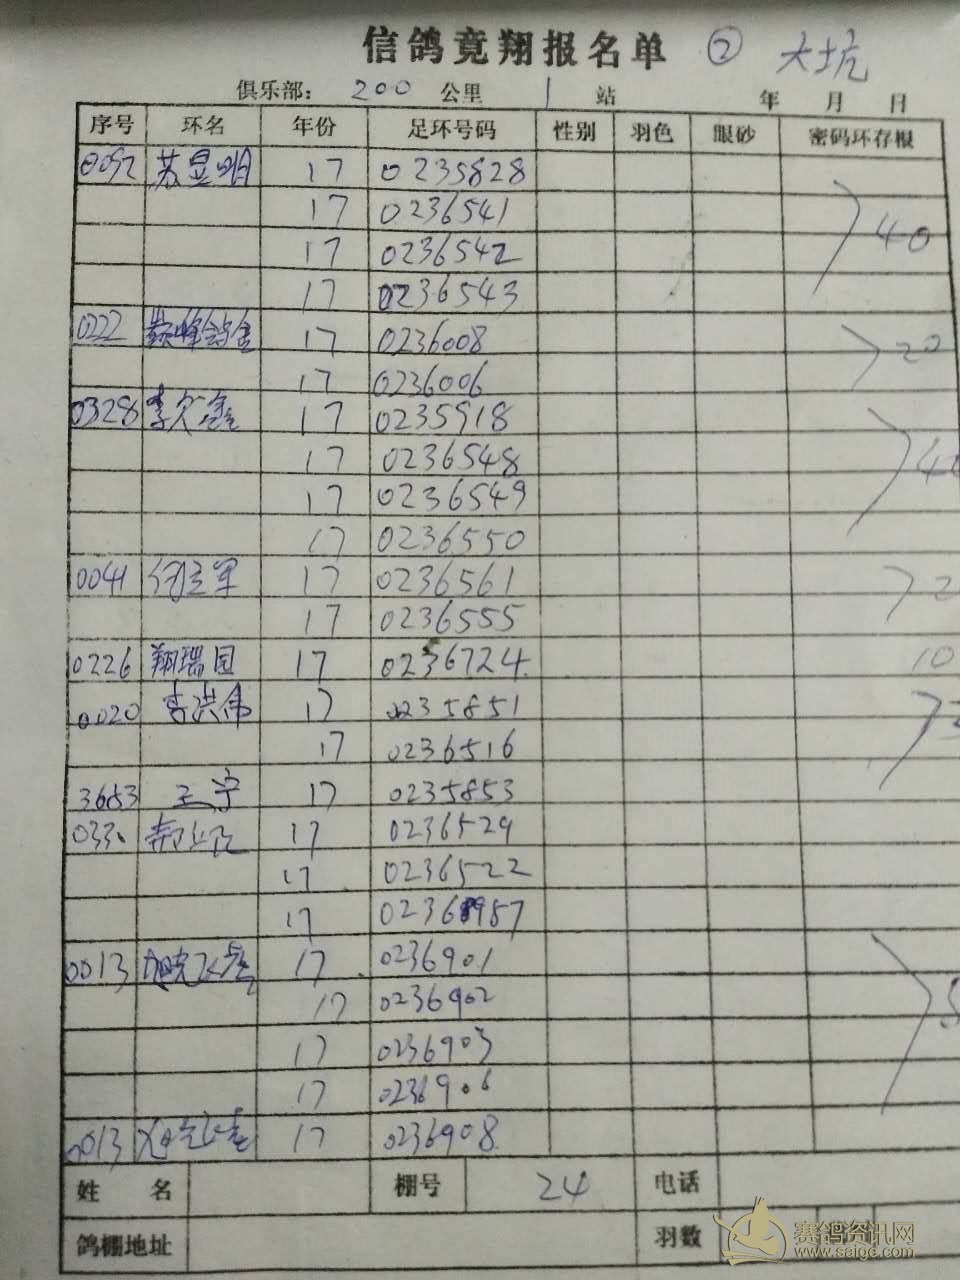 信鸽竞翔报名单 ② 大坑
俱乐部： 200 公里 1 站 年 月 日
序号 环名 年份 足环号码 性别 羽色 眼砂 密码环存根
0092 苏显明 17 0235828
17 0236541 40
17 0236542
17 0236543
0222 巅峰 17 0236008 20
17 0236006
0328 李 鑫 17 0235918
17 0236548
17 0236549
17 0236550
0041 何立军 17 0236561
17 0236555
0226 翔瑞园 17 0236724 10
0020 李洪伟 17 0235851
17 0236516
3683 王宁 17 0235853
17 0236529
17 0236522
17 0236987
0013 17 0236901
17 0236902
17 0236903
17 0236906
0013 17 0236908
姓 名 棚号 24 电话
鸽棚地址 羽数
赛鸽资讯网
www.saige.com